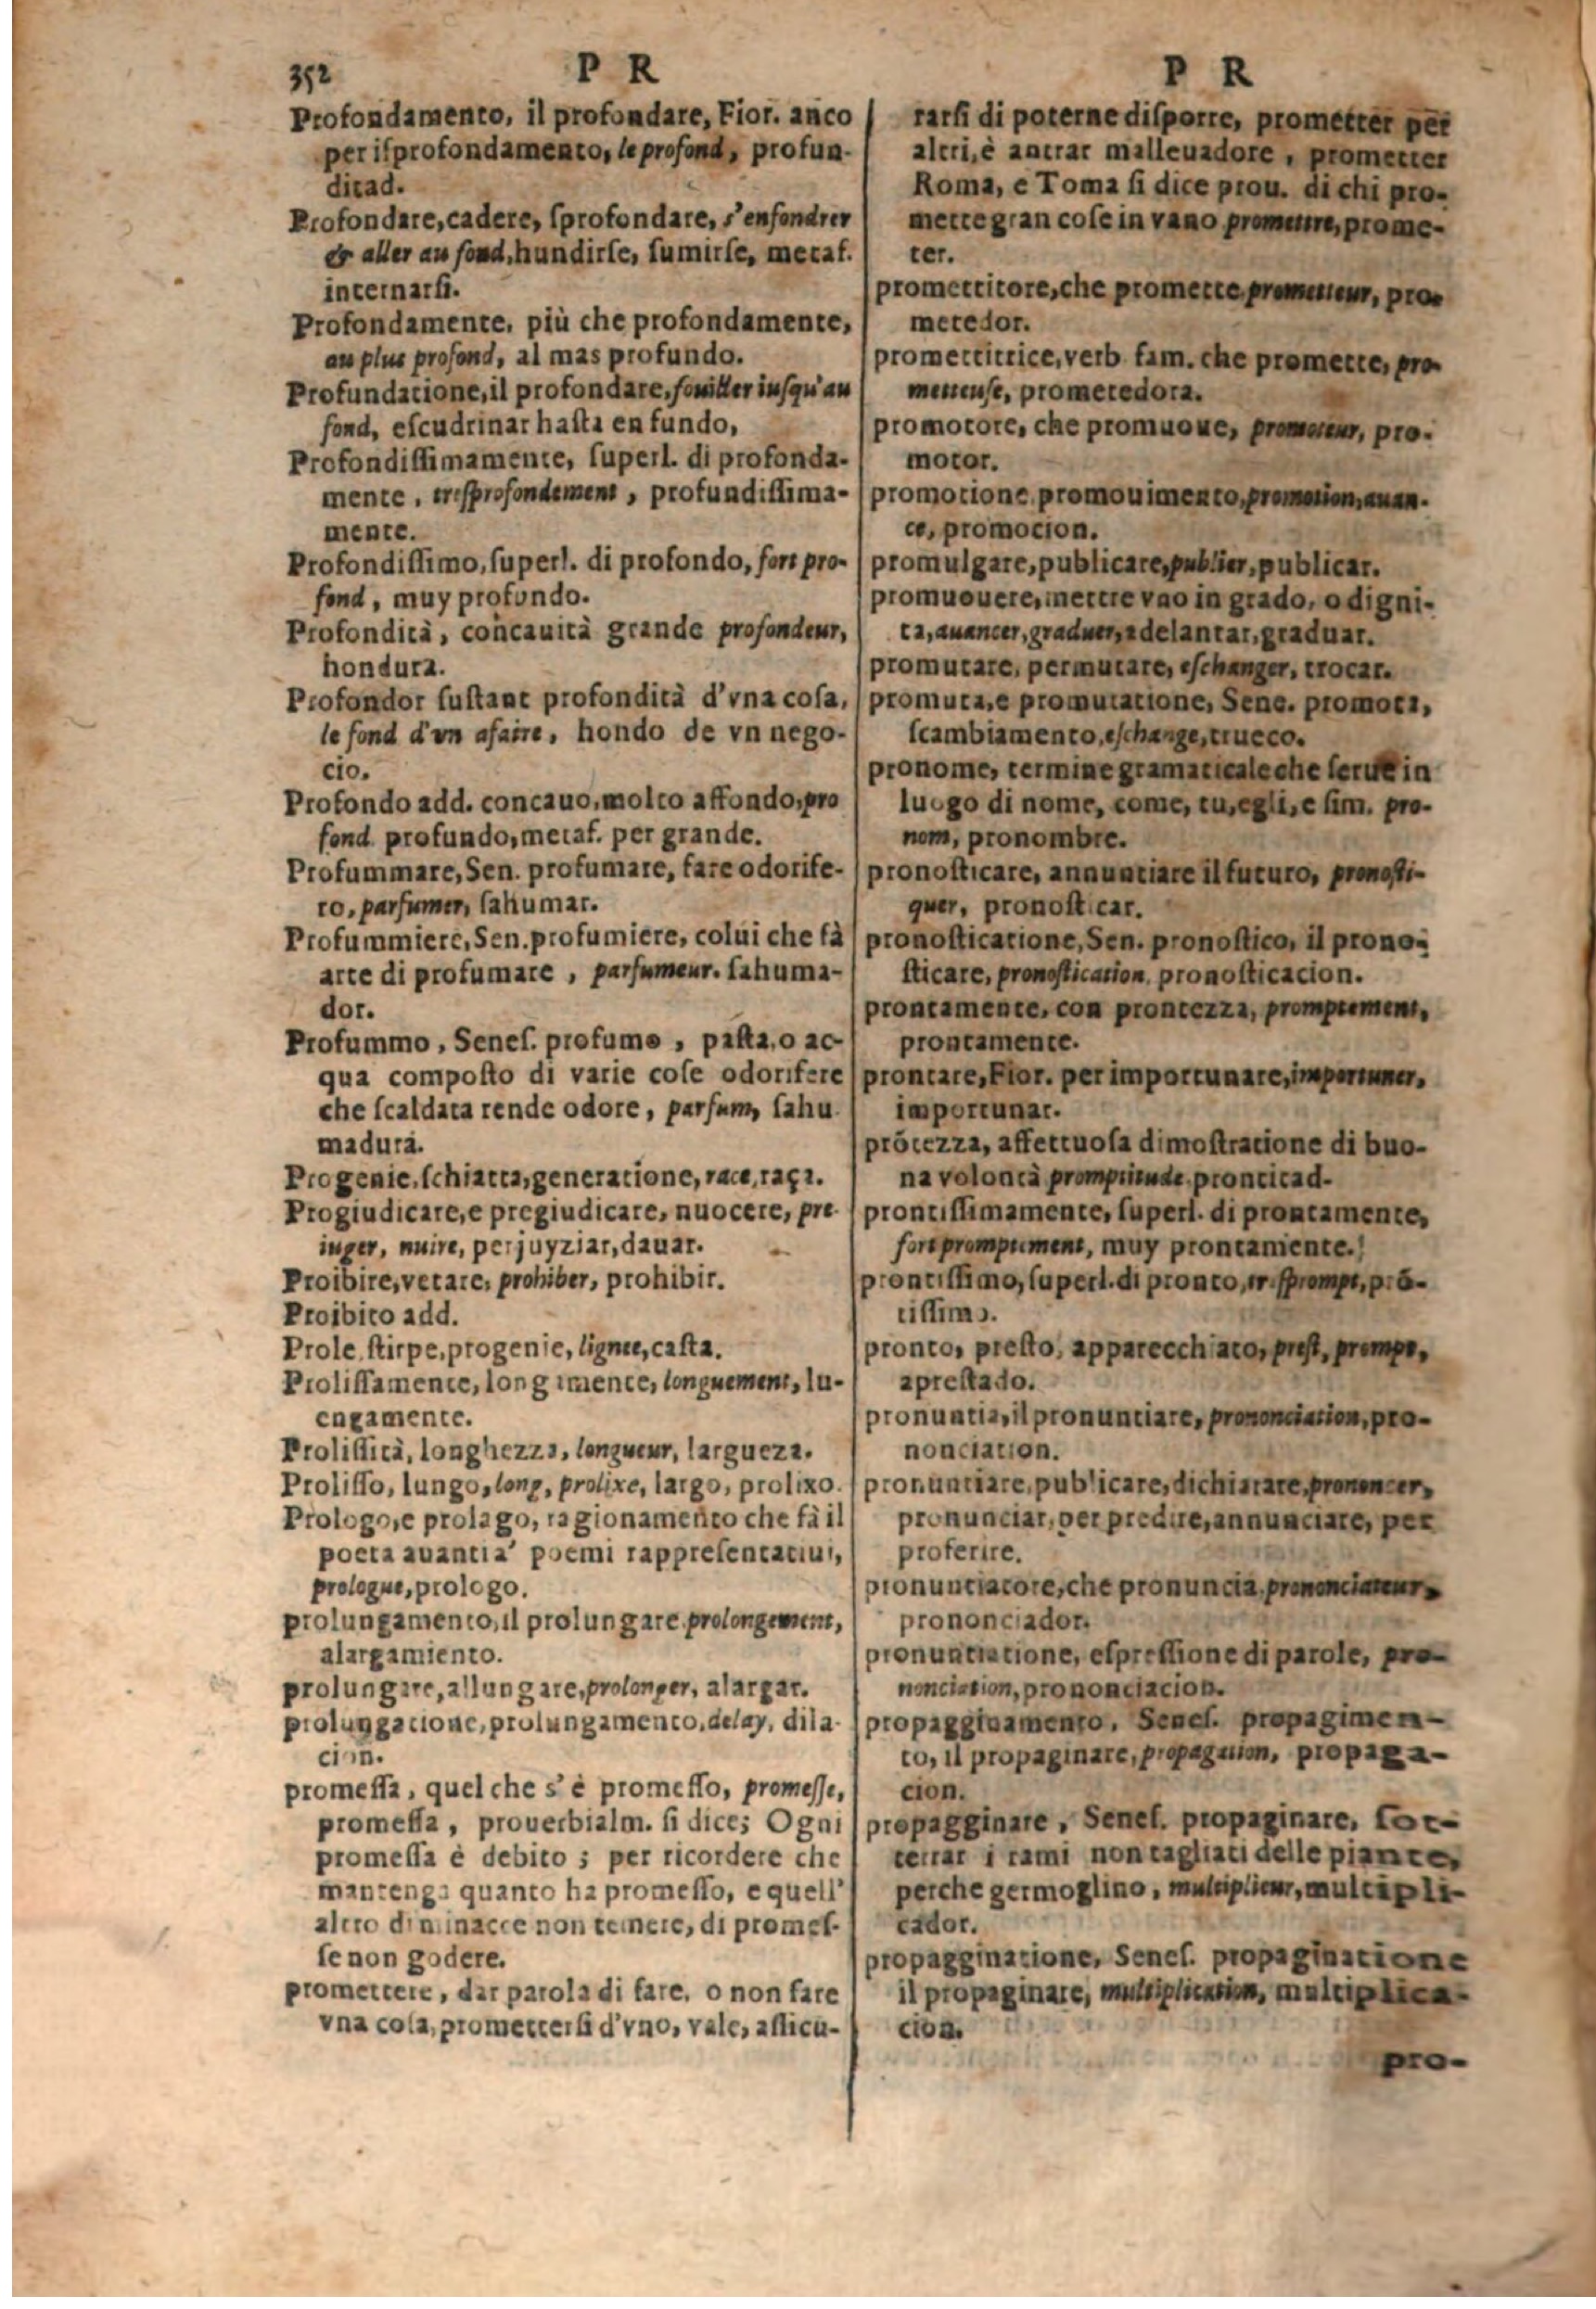 352 P R
P R
Profondamento, il profondare, Fior. anco
per iſprofondamento, le profond, profun-
ditad.
Profondare, cadere, ſprofondare, s'enfondrer
& aller au fond, hundirſe, ſumirſe, metaf.
internarſi.
Profondamente, più che profondamente,
au plus profond, al mas profundo.
Profundatione, il profondare, fouiller iuſqu'au
fond, eſcudrinar haſta en fundo,
Profondiſſimamente, ſuperl. di profonda-
mente, treſprofondement, profundiſſima-
mente.
Profondiſſimo, ſuperl. di profondo, fort pro-
fond, muy profundo.
Profondità, concauità grande profondeur,
hondura.
Profondor ſuſtant profondità d'vna coſa,
le fond d'vn afaire, hondo de vn nego-
cio.
Profondo add. concauo, molto affondo, pro
fond. profundo, metaf. per grande.
Profummare, Sen. profumare, fare odorife-
ro, parfumer, ſahumar.
Profummiere, Sen. profumiere, colui che fà
arte di profumare, parfumeur. ſahuma-
dor.
Profummo, Seneſ. profumo, paſta, o ac-
qua compoſto di varie coſe odorifere
che ſcaldata rende odore, parfum, ſahu
madura.
Progenie, ſchiatta, generatione, race, raça.
Progiudicare, e pregiudicare, nuocere, pre
iuger, nuire, perjuyziar, dauar.
Proibire, vetare, prohiber, prohibir.
Proibito add.
Prole, ſtirpe, progenie, lignee, caſta.
Proliſſamente, longamente, longuement, lu-
engamente.
Proliſſità, longhezza, longueur, largueza.
Proliſſo, lungo, long, prolixe, largo, prolixo.
Prologo, e prolago, ragionamento che fà il
poeta auanti a' poemi rappreſentatiui,
prologue, prologo.
prolungamento, il prolungare prolongement,
alargamiento.
prolungare, allungare, prolonger, alargar.
prolungatione, prolungamento, delay, dila-
cion.
promeſſa, quel che s'è promeſſo, promeſſe,
promeſſa, prouerbialm. ſi dice; Ogni
promeſſa è debito; per ricordere che
mantenga quanto ha promeſſo, e quell'
altro di minacce non temere, di promeſ-
ſe non godere.
promettere, dar parola di fare, o non fare
vna coſa, prometterſi d'vno, vale, aſſicu-
rarſi di poterne diſporre, prometter per
altri, è antrar malleuadore, prometter
Roma, e Toma ſi dice prou. di chi pro-
mette gran coſe in vano promettre, prome-
ter.
promettitore, che promette prometteur, pro-
metedor.
promettitrice, verb fam. che promette, pro-
metteuſe, prometedora.
promotore, che promuoue, promoteur, pro-
motor.
promotione, promouimento, promotion, auan-
ce, promocion.
promulgare, publicare, publier, publicar.
promuouere, mettre vno in grado, o digni-
ta, auancer, graduer, adelantar, graduar.
promutare, permutare, eſchanger, trocar.
promuta, e promutatione, Sene. promota,
ſcambiamento, eſchange, trueco.
pronome, termine gramaticale che ſerue in
luogo di nome, come, tu, egli, e ſim. pro-
nom, pronombre.
pronoſticare, annuntiare il futuro, pronoſti-
quer, pronoſticar.
pronoſticatione, Sen. pronoſtico, il prono-
ſticare, pronoſtication, pronoſticacion.
prontamente, con prontezza, promptement,
prontamente.
prontare, Fior. per importunare, importuner,
importunar.
prõtezza, affettuoſa dimoſtratione di buo-
na volontà promptitude, prontitad-
prontiſſimamente, ſuperl. di prontamente,
fort promptement, muy prontamente.
prontiſſimo, ſuperl. di pronto, treſprompt, prõ-
tiſſimo.
pronto, preſto, apparecchiato, preſt, prompt,
apreſtado.
pronuntia, il pronuntiare, prononciation, pro-
nonciation.
pronuntiare, publicare, dichiarare, prononcer,
pronunciar, per predire, annunciare, per
proferire.
pronuntiatore, che pronuncia prononciateur,
prononciador.
pronuntiatione, eſpreſſione di parole, pro-
nonciation, prononciacion.
propagginamento, Seneſ. propagimen-
to, il propaginare, propagation, propaga-
cion.
propagginare, Seneſ. propaginare, ſot-
terrar i rami non tagliati delle piante,
perche germoglino, multiplieur, multipli-
cador.
propagginatione, Seneſ. propaginatione
il propaginare, multiplication, multiplica-
cion.
pro-